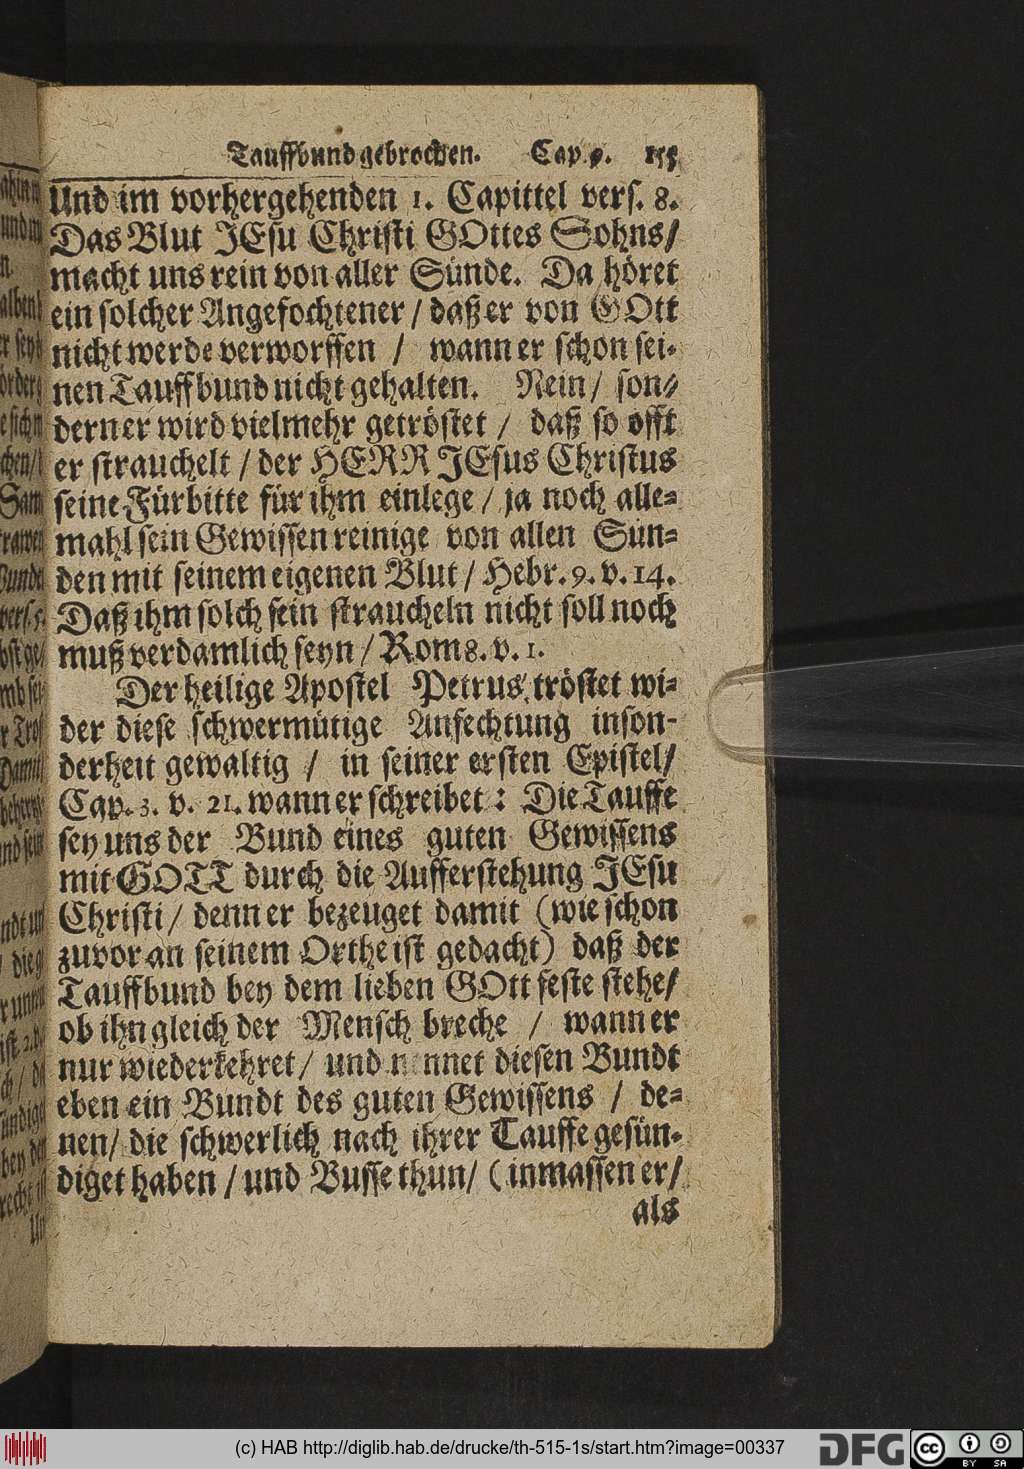 Tauffbund gebrochen. Cap. 9. 155
Und im vorhergehenden 1. Capittel vers. 8.
Das Blut JEsu Christi GOttes Sohns/
macht uns rein von aller Sünde. Da höret
ein solcher Angefochtener / daß er von GOtt
nicht werde verworffen / wann er schon sei-
nen Tauffbund nicht gehalten. Nein / son-
dern er wird vielmehr getröstet / daß so offt
er strauchelt / der HERR JEsus Christus
seine Fürbitte für ihm einlege / ja noch alle-
mahl sein Gewissen reinige von allen Sün-
den mit seinem eigenen Blut / Hebr. 9. v. 14.
Daß ihm solch sein straucheln nicht soll noch
muß verdamlich seyn / Rom 8. v. 1.
Der heilige Apostel Petrus tröstet wi-
der diese schwermütige Anfechtung inson-
derheit gewaltig / in seiner ersten Epistel /
Cap. 3. v. 21. wann er schreibet : Die Tauffe
sey uns der Bund eines guten Gewissens
mit GOTT durch die Aufferstehung JEsu
Christi / denn er bezeuget damit (wie schon
zuvor an seinem Orthe ist gedacht) daß der
Tauffbund bey dem lieben GOtt feste stehe /
ob ihn gleich der Mensch breche / wann er
nur wiederkehret / und nennet diesen Bundt
eben ein Bundt des guten Gewissens / de-
nen / die schwerlich nach ihrer Tauffe gesün-
diget haben / und Busse thun / (inmassen er /
als
(c) HAB http://diglib.hab.de/drucke/th-515-1s/start.htm?image=00337
DFG
cc
BY SA